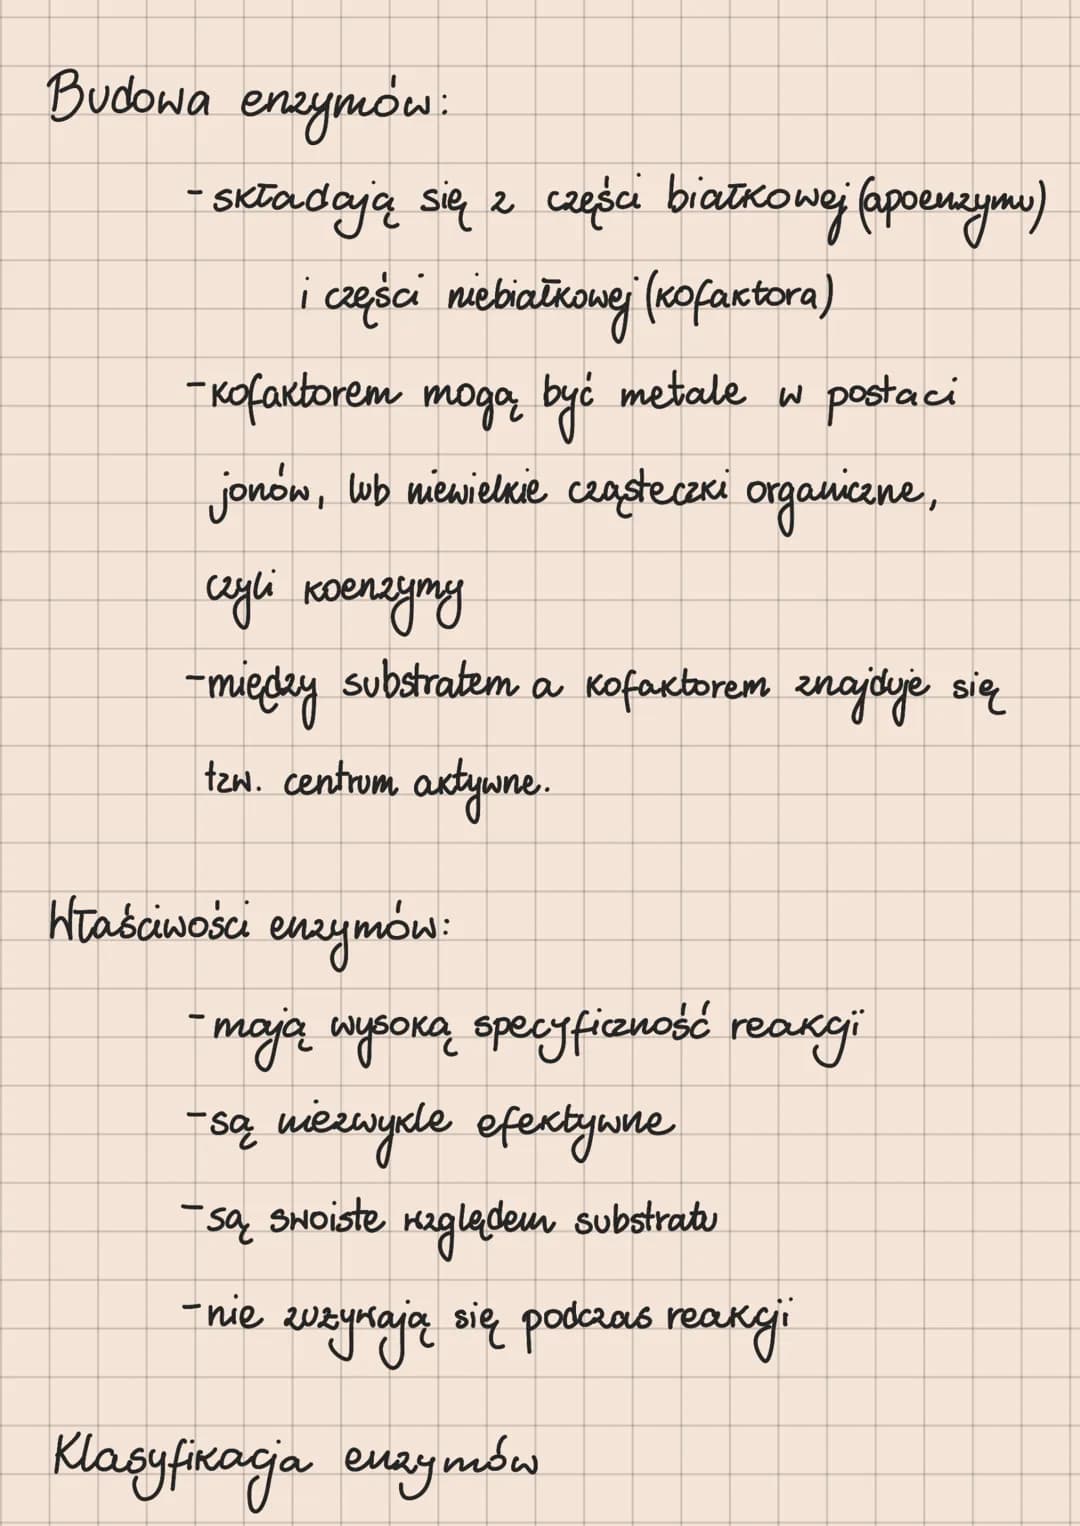 Budowa enzymów:
- składają się z części białkowej (apoenzymu)
i części niebiałkowej (kofaktora)
- kofaktorem mogą być metale w postaci
jonów, lub niewielkie cząsteczki organiczne,
czyli koenzymy
- między substratem a kofaktorem znajduje się
tzw. centrum aktywne.
Właściwości enzymów:
- mają wysoką specyficzność reakcji
- są niezwykle efektywne
- są swoiste względem substratu
- nie zużywają się podczas reakcji
Klasyfikacja enzymów